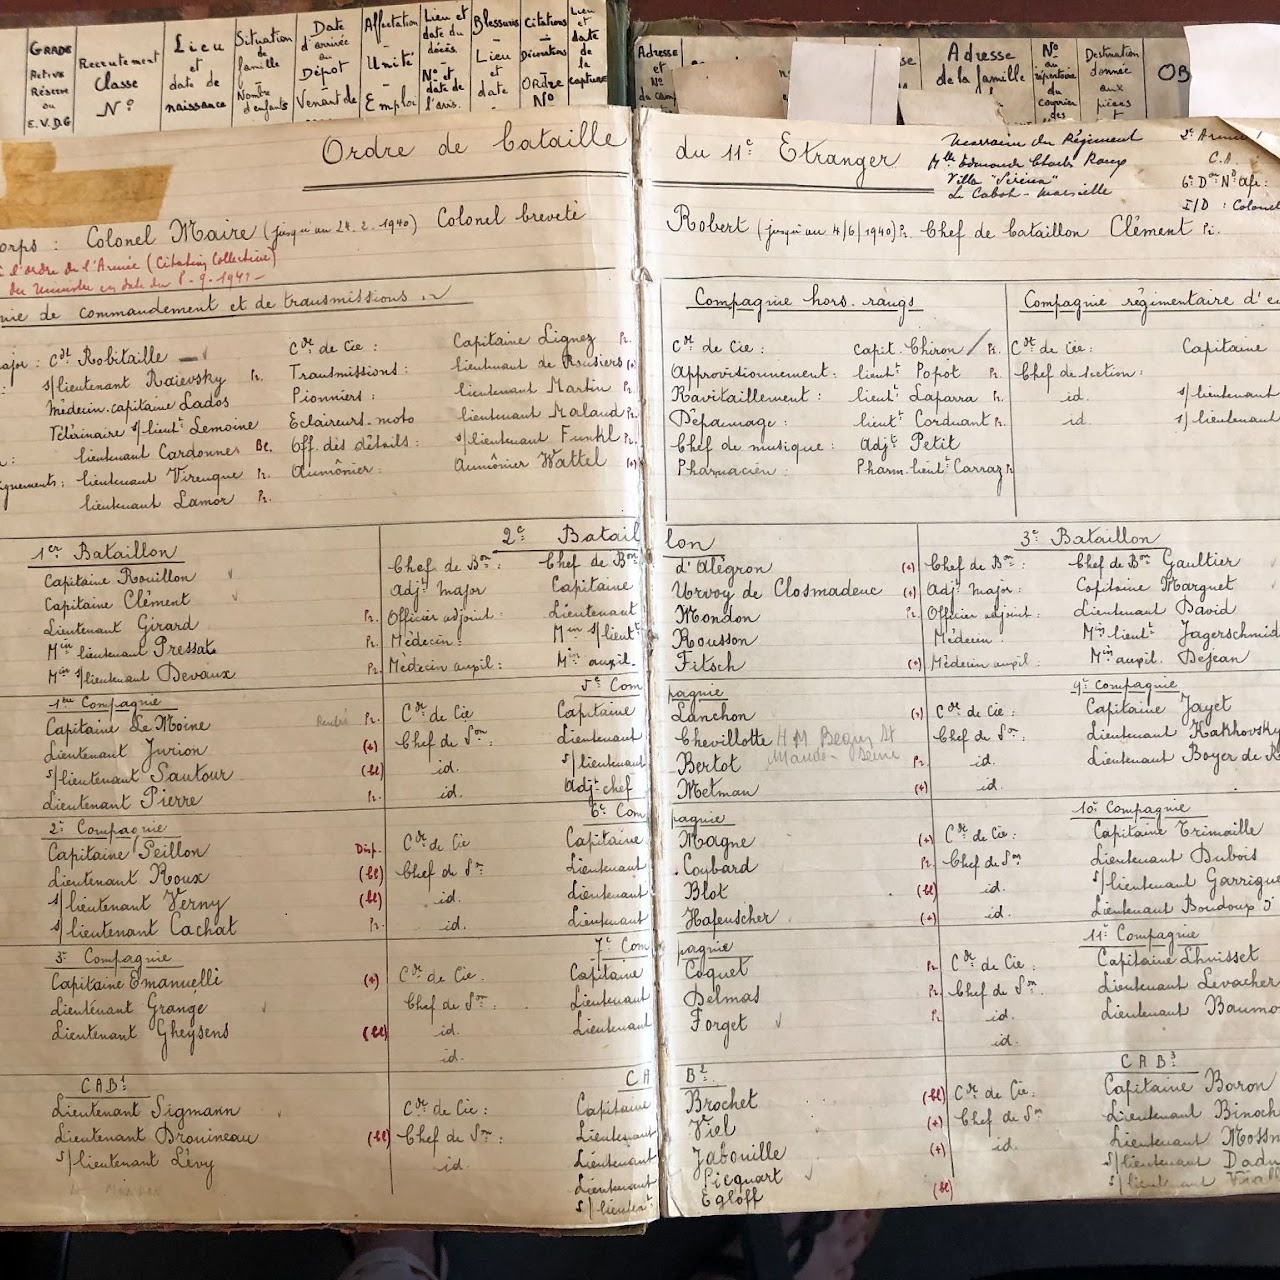 GRADE Active Réserve ou E.V.D.G
Recrutement Classe N°
Lieu et date de naissance
Situation de famille Nombre d'enfants
Date d'arrivée au Dépôt Venant de
Affectation - Unité - Emploi
Lieu et date du décès N° et date de l'avis.
Blessures - Lieu et date
Citations - Décorations ORDRE N°
Lieu et date de la capture
Adresse et N° du camp
Adresse de la famille
N° au répertoire du courrier des
Destination donnée aux pièces
OB
Ordre de bataille du 11e Etranger
Marraine du Régiment
Melle Edmonde Charles Roux
Villa "Serena"
Le Cabot - Marseille
2e Armée
C.A.
6e Don Nd Afr.
I/D : Colonel
orps : Colonel Maire (jusqu'au 24.2.1940) Colonel breveté Robert (jusqu'au 4/6/1940) Pr. Chef de bataillon Clément Pr.
à l'ordre de l'Armée (Citation Collective)
nie de commandement et de transmissions
Compagnie hors-rangs
Compagnie régimentaire d'e
ajor : Cdt Robitaille Cdt de Cie : Capitaine Lignez Pr. Cdt de Cie : capit. Chiron Pr. Cdt de Cie : Capitaine
s/lieutenant Raïevsky Pr. Transmissions : lieutenant de Rosiers (+) Approvisionnement : lieutt Popot Pr. Chef de section :
Médecin-capitaine Lados Pionniers : lieutenant Martin Pr. Ravitaillement : lieutt Laparra Pr. id. s/lieutenant
Vétérinaire s/lieutt Lemoine Eclaireurs-moto lieutenant Malaud Pr. Dépannage : lieutt Corduant Pr. id. s/lieutenant
lieutenant Cardonnes Be. Off. des détails : s/lieutenant Funkl Pr. Chef de musique : Adjt Petit
ignements : lieutenant Vireuque Pr. Aumônier : Aumônier Wattel (+) Pharmacien : Pharm. lieutt Carraz Pr
lieutenant Lamor Pr.
1er Bataillon 2e Bataillon 3e Bataillon
Capitaine Rouillon Chef de Bon : Chef de Bon d'Alégron (+) Chef de Bon : Chef de Bon Gaultier
Capitaine Clément Adjt Major Capitaine Urvoy de Closmadeuc (+) Adjt Major : Capitaine Marguet
Lieutenant Girard Pr. Officier adjoint : Lieutenant Mondon Pr. Officier adjoint : Lieutenant David
Min lieutenant Pressat Pr. Médecin : Min s/lieutt Rousson Médecin Min lieutt Jagerschmid
Min s/lieutenant Devaux Pr. Médecin auxil : Min auxil. Fitsch (+) Médecin auxil : Min auxil. Dejean
1ère Compagnie 5e Compagnie 9e Compagnie
Capitaine Le Moine Pr. Cdt de Cie Capitaine Lanchon (+) Cdt de Cie : Capitaine Jayet
Lieutenant Jurion (+) Chef de Son : Lieutenant Chevillotte Chef de Son : Lieutenant Kakhovsky
s/lieutenant Sautour (bl) id. s/lieutenant Bertot Pr. id. Lieutenant Boyer de R
Lieutenant Pierre Pr. id. Adjt-chef Metman (+) id.
2e Compagnie 6e Compagnie 10e Compagnie
Capitaine Peillon Disp. Cdt de Cie Capitaine Magne (+) Cdt de Cie : Capitaine Trimaille
Lieutenant Roux (bl) Chef de Son Lieutenant Coybard Pr. Chef de Son Lieutenant Dubois
s/lieutenant Verny (bl) id. Lieutenant Blot (bl) id. s/lieutenant Garrigue
s/lieutenant Cachat Pr. id. Lieutenant Hafenscher (+) id. Lieutenant Boudoux d'
3e Compagnie 7e Compagnie 11e Compagnie
Capitaine Emanuelli (+) Cdt de Cie. Capitaine Coquet Pr. Cdt de Cie : Capitaine Lhuisset
Lieutenant Grange Chef de Son : Lieutenant Delmas Pr. Chef de Son. Lieutenant Levacher
Lieutenant Gheysens (bl) id. Lieutenant Forget Pr. id. Lieutenant Baumo
id. id.
CAB1 CAB2 CAB3
Lieutenant Sigmann Cdt de Cie : Capitaine Brochet (bl) Cdt de Cie : Capitaine Baron
Lieutenant Drouineau (bl) Chef de Son : Lieutenant Viel (+) Chef de Son Lieutenant Binoch
s/lieutenant Lévy id. Lieutenant Jabouille (+) id. Lieutenant Mossm
Lieutenant Picquart s/lieutenant Dadu
s/lieutent Egloff (bl) s/lieutenant Viall